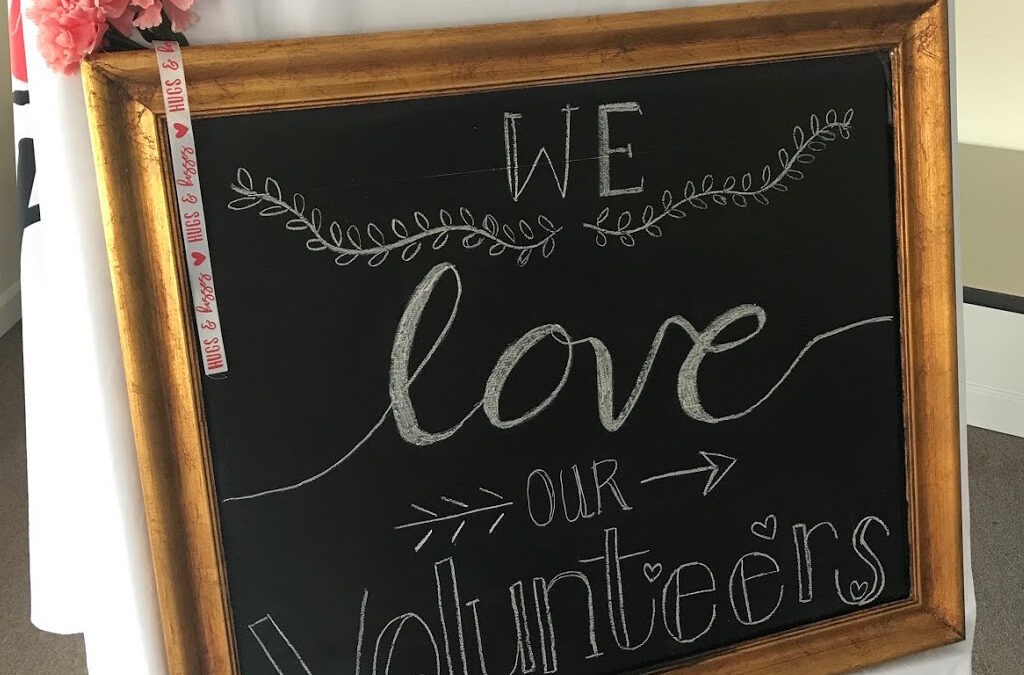 WE
love
OUR
Volunteers
HUGS & kisses ♥ HUGS & kisses ♥ HUGS & k